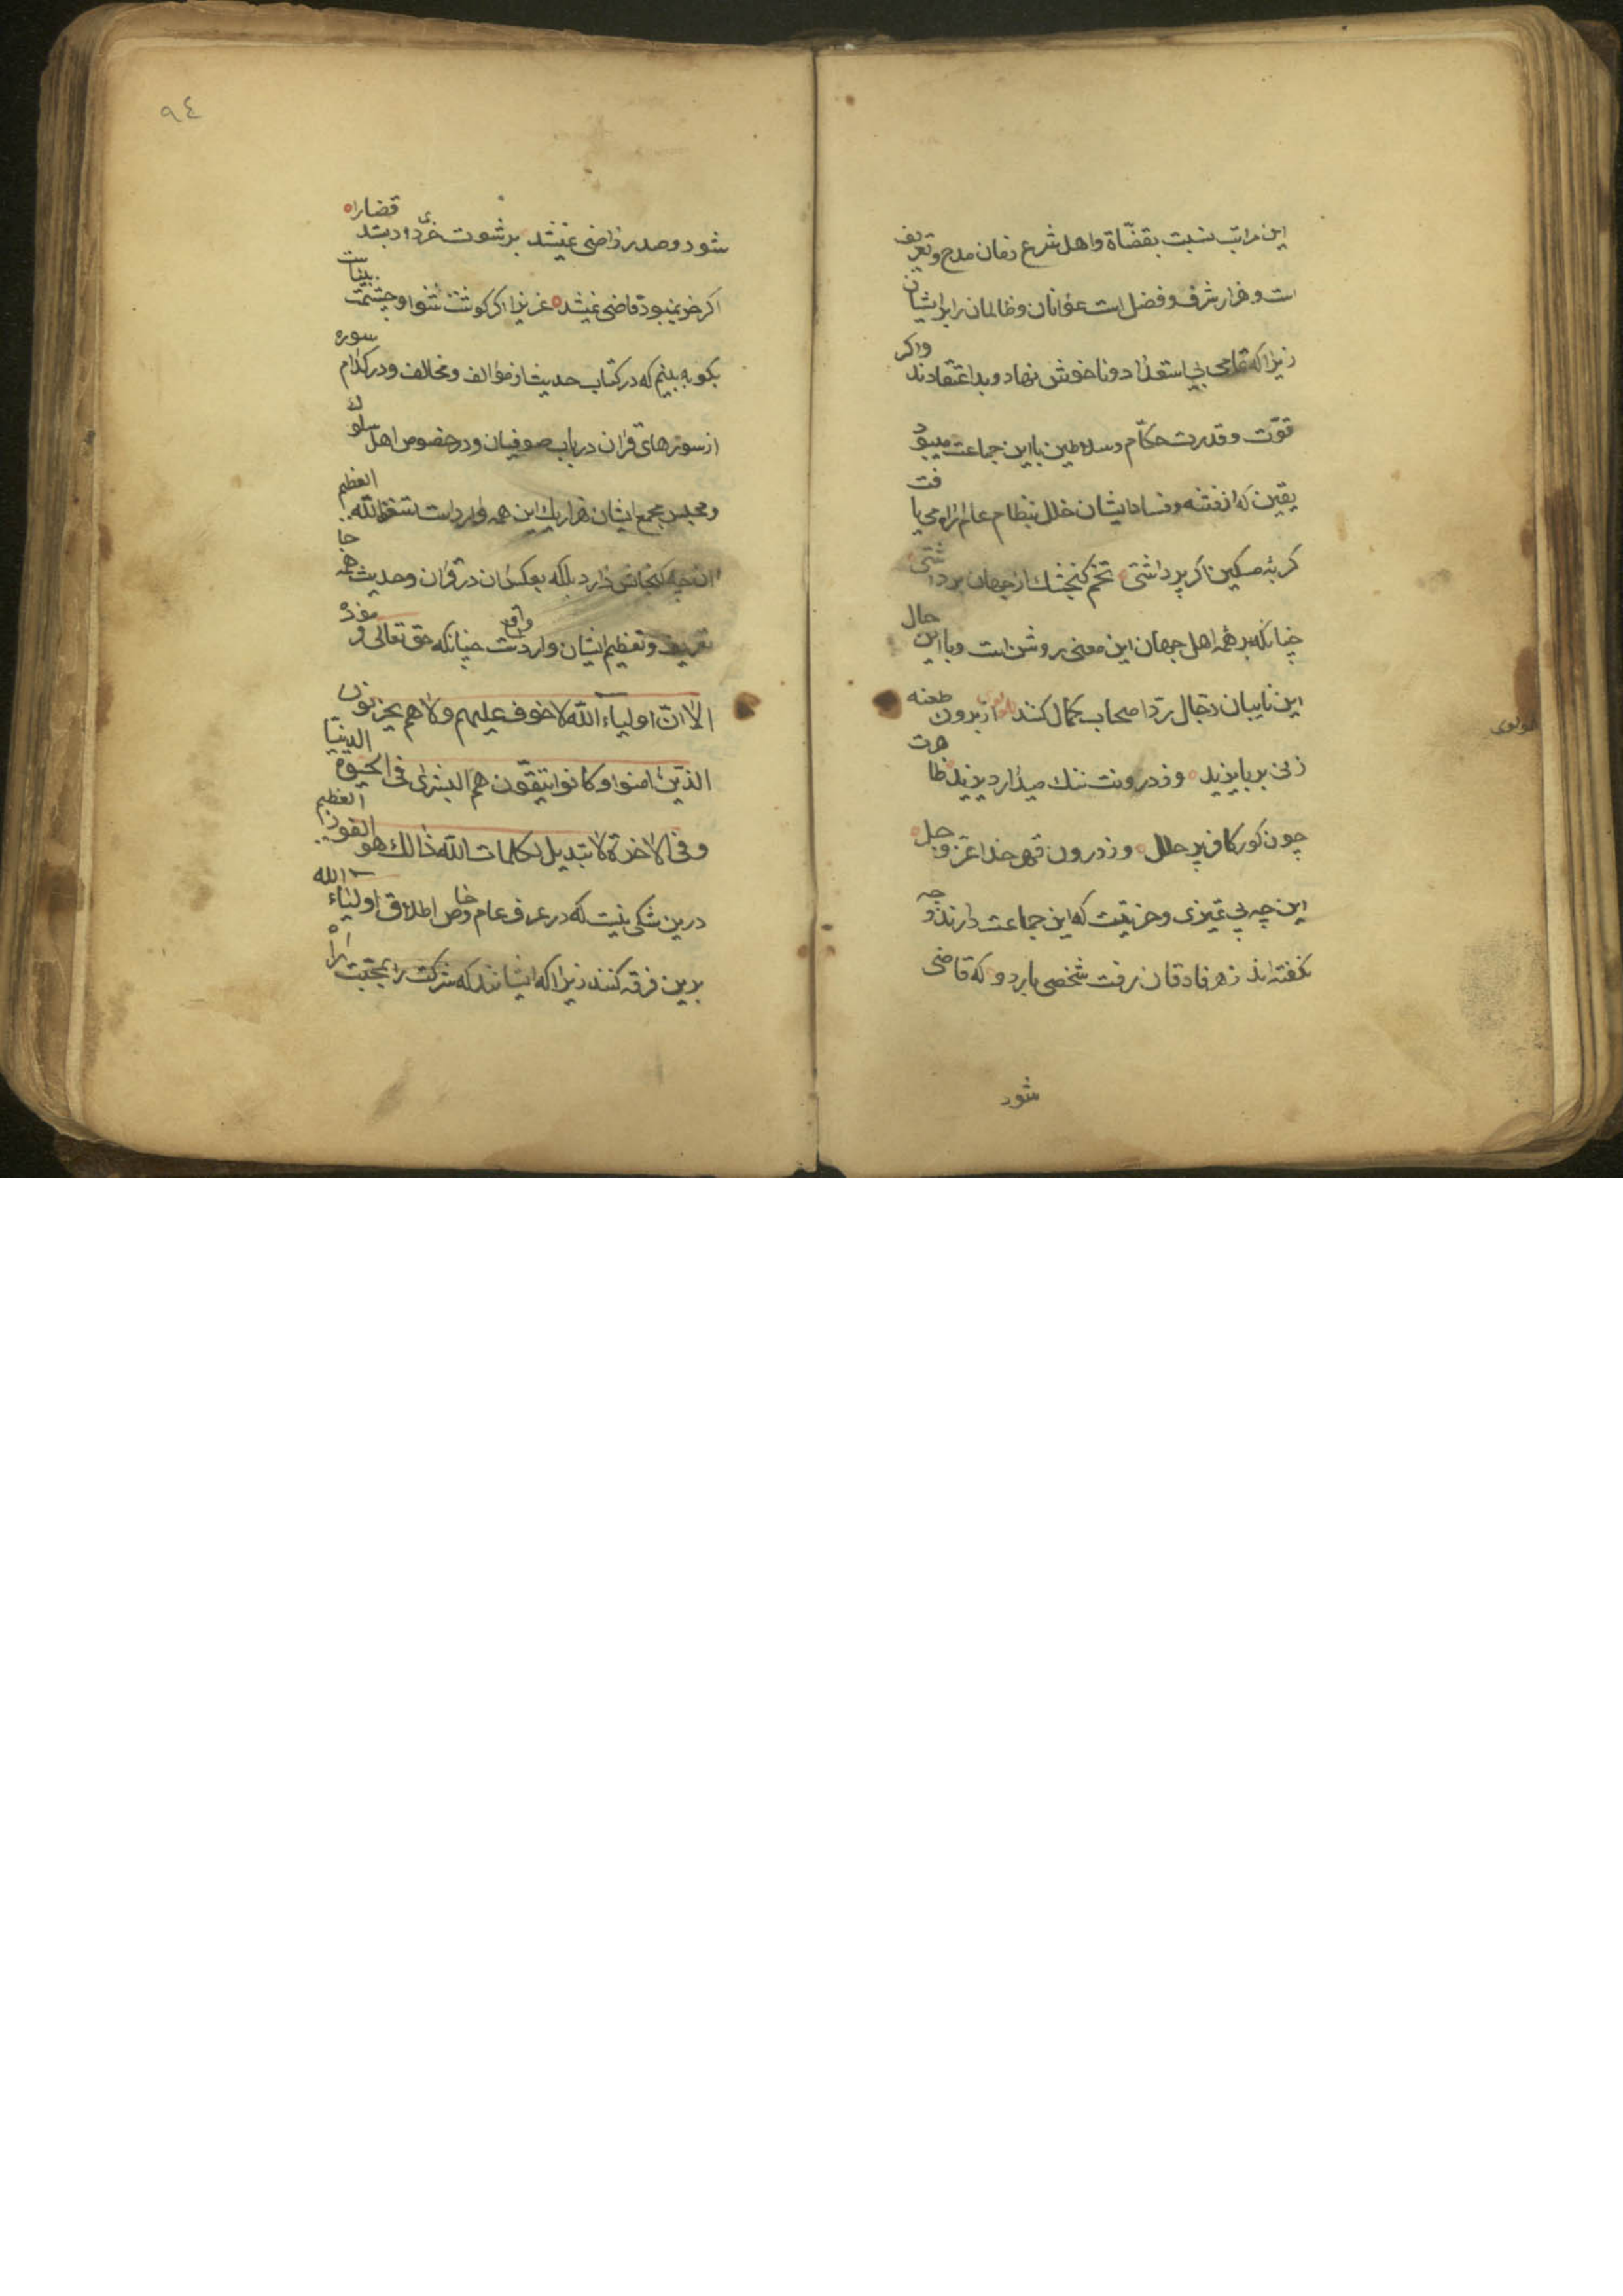 این مراتب نسبت بقضّاة واهل شرع زمان مدح وتعریف
است وهزار شرف وفضل است عوانان وظالمان را برایشان
زیرا که تمامی بی استعداد وناخوش نهاد وبد اعتقادند واکر
قوّت وقدرت حکّام وسلاطین با این جماعت میبود
یقین که از فتنه وفساد ایشان خلل بنظام عالم راه می یافت
کربهٔ مسکین اکر پر داشتی تخم کنجشك از جهان برداشتی
چنانکه بر همه اهل جهان این معنی روشن است وبا این حال
این نایبان دجّال ردّ اصحاب کمال کنند از برون طعنه
زنی بر بایزید وز درونت ننك میدارد یزید ظاهرت
چون کور کافر پر حلل وز درون قهر خدا عزّ وجل
این چه بی تمیزی وخریتست که این جماعت دارند وچه
نکفته اند زهر فادقان رفت شخصی بار دو که قاضی
شود
مولوی
٩٤
شود وصدر راضی نمیشد برشوت خری داد بستد قضا را
اکر خر نمیبود قاضی نمیشد عزیزا اکر کوشت شنوا وچشمت بیناست
بکو به بینم که در کتاب حدیث از مؤالف ومخالف ودر کدام سوره
از سورهای قران در باب صوفیان ودر خصوص اهل سلوك
ومجلس ومجمع ایشان هزار یك این همه وارد است استغفرالله العظیم
ان چه کنجایش دارد بلکه بعکس ان در قران وحدیث همه جا
تعریف وتعظیم ایشان وارد واقع است چنانکه حق تعالی فرموده
الا انّ اولیاء الله لا خوف علیهم ولا هم یحزنون
الذین امنوا وکانوا یتّقون لهم البشری فی الحیوة الدنیا
وفی الاخرة لا تبدیل لکلمات الله ذالك هو الفوز العظیم
درین شکی نیست که در عرف عام وخاص اطلاق اولیاء الله
بدین فرقه کنند زیرا که ایشانند که شرکت را بمحبّت